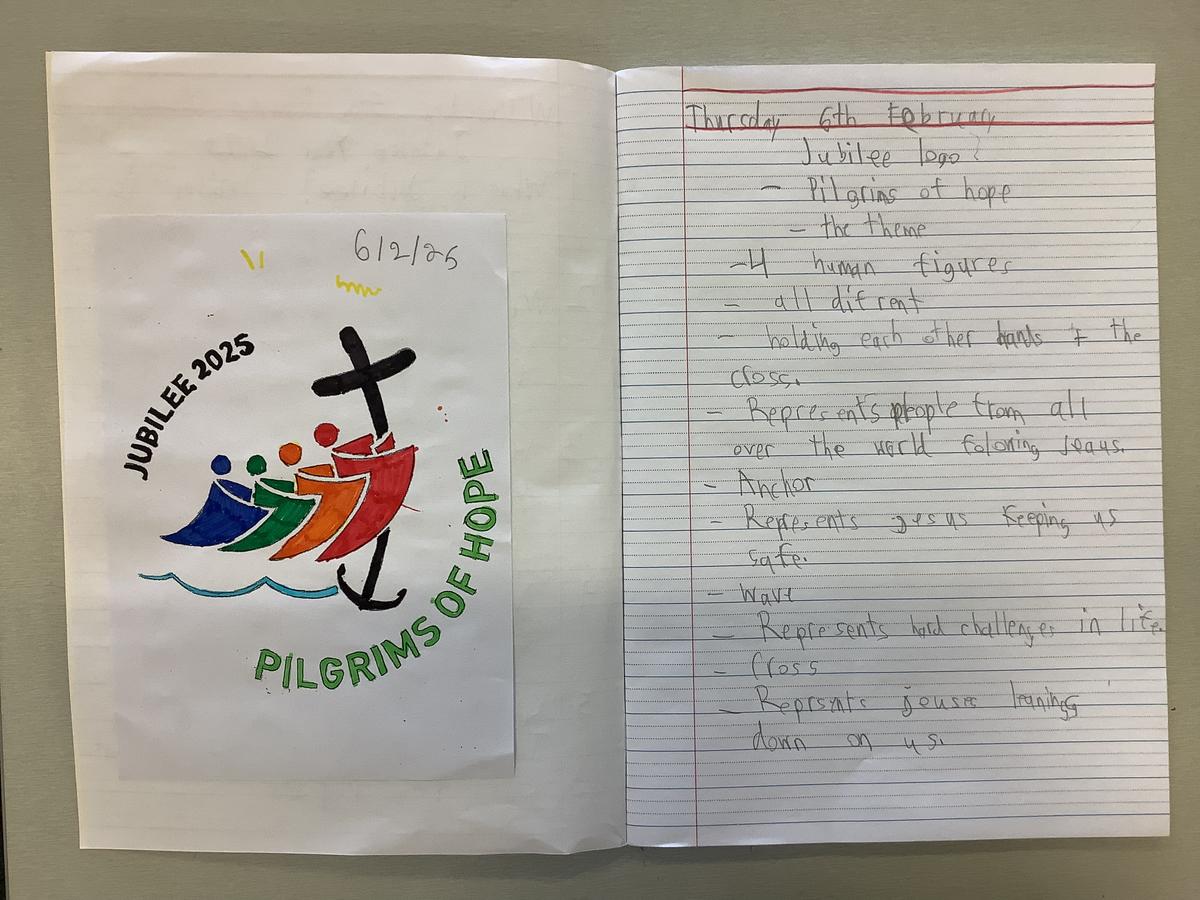 6/2/25
JUBILEE 2025
PILGRIMS OF HOPE
Thursday 6th February
Jubilee logo?
- Pilgrims of hope
- the theme
-4 human figures
- all difrent
- holding each other hands & the
cross.
- Represents people from all
over the world folowing Jesus.
- Anchor
- Represents jesus keeping us
safe.
- Wave
- Represents hard challenges in life.
- Cross
- Reprsents jouses leanings
down on us.